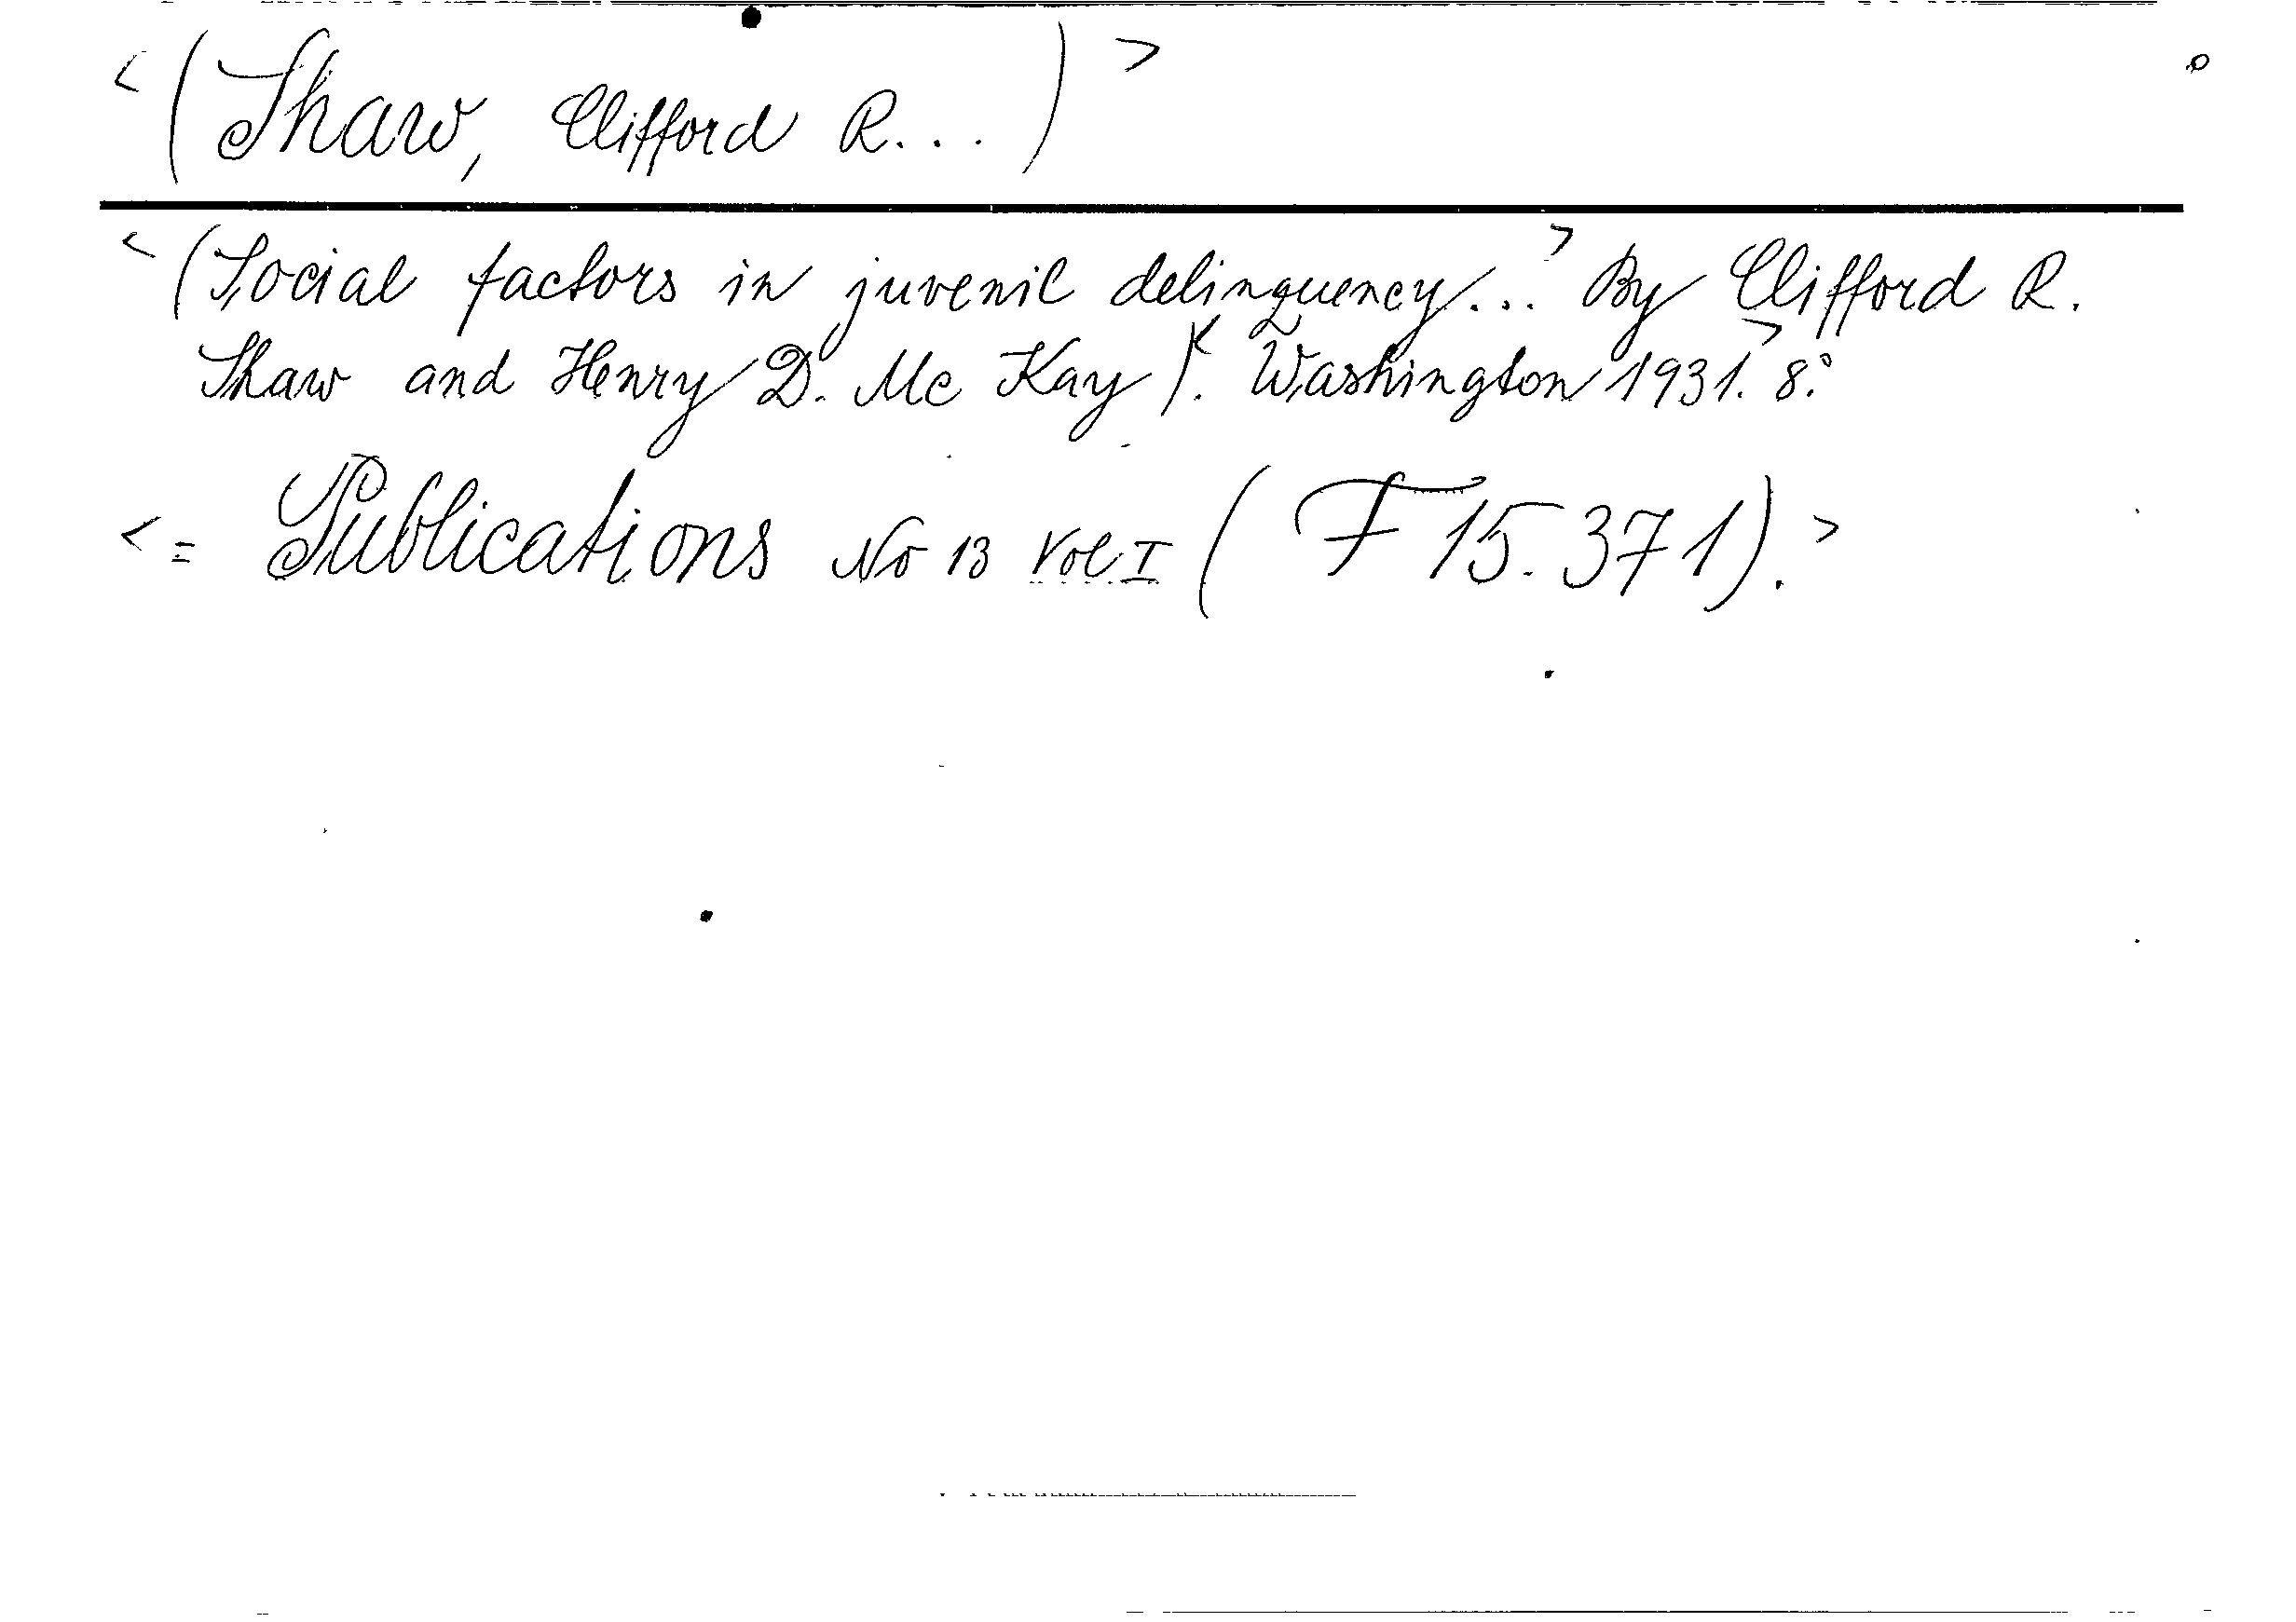 <(Shaw, Clifford R...)>
<(Social factors in juvenil delinquency...> By Clifford R.
Shaw and Henry D. Mc Kay)<. Washington 1931.> 8.°
<= Publications No 13 Vol I (F 15.371).>